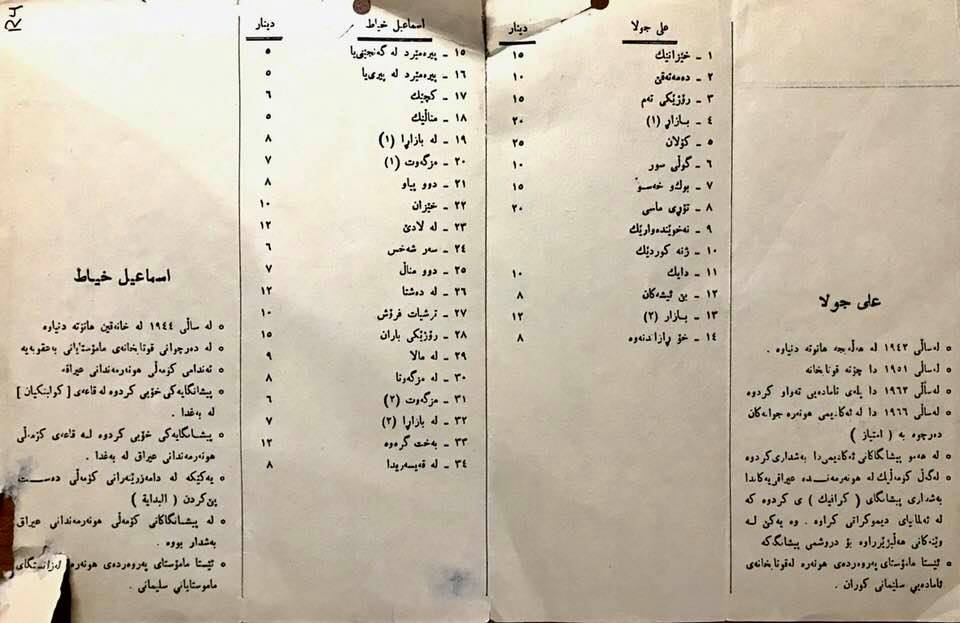 R4
علی جولا
o لەساڵی ١٩٤٢ لە هەڵەبجە هاتوتە دنیاوە .
o لەساڵی ١٩٥١ دا چێتە قوتابخانە
o لەساڵی ١٩٦٣ دا پلەی ئامادەیی تەواو کردوە
o لەساڵی ١٩٦٦ دا لە ئەکادیمی هونەرە جوانەکان
دەرچوە بە ( امتیاز )
o لە هەمو پیشانگاکانی ئەکادیمی دا بەشداری کردوە
o لەگەڵ کۆمەڵیك لە هونەرمەندە عیراقی یەکاندا
بەشداری پیشانگای ( کرافیك ) ی کردوە کە
لە ئەلمانیای دیموکراتی کراوە . وە یەکێ لە
وێنەکانی هەڵبژێرراوە بۆ دروشمی پیشانگەکە
o ئێستا مامۆستای پەروەردەی هونەرە لەقوتابخانەی
ئامادەیی سلێمانی کوران .
علی جولا دینار
١ - خێزانێك ١٥
٢ - دەمەتەقێ ١٠
٣ - رۆژێکی تەم ١٥
٤ - بازاڕ (١) ٢٠
٥ - کۆلان ٢٥
٦ - گوڵی سور ١٠
٧ - بوك و خەسو ١٥
٨ - تۆڕی ماسی ٢٠
٩ - نەخوێندەوارێك
١٠ - ژنە کوردێك
١١ - دایك ١٠
١٢ - بێ ئیشەکان ٨
١٣ - بازار (٢) ١٢
١٤ - خۆ ڕازاندنەوە ٨
اسماعیل خیاط دینار
١٥ - پیرەمێرد لە گەنجێتی یا ٥
١٦ - پیرەمێرد لە پیری یا ٥
١٧ - کچێك ٦
١٨ - مناڵێك ٥
١٩ - لە بازاڕا (١) ٨
٢٠ - مزگەوت (١) ٧
٢١ - دوو پیاو ٨
٢٢ - خێزان ١٠
٢٣ - لە لادێ ١٢
٢٤ - سەر شەخس ٦
٢٥ - دوو مناڵ ٧
٢٦ - لە دەشتا ١٢
٢٧ - ترشیات فرۆش ١٠
٢٨ - رۆژێکی باران ١٥
٢٩ - لە مالا ٩
٣٠ - لە مزگەوتا ٨
٣١ - مزگەوت (٢) ٦
٣٢ - لە بازاڕا (٢) ٧
٣٣ - بەخت گرەوە ١٢
٣٤ - لە قەیسەریدا ٨
اسماعیل خیاط
o لە ساڵی ١٩٤٤ لە خانەقین هاتۆتە دنیاوە
o لە دەرچوانی قوتابخانەی مامۆستایانی بەعقوبەیە
o ئەندامی کۆمەڵی هونەرمەندانی عیراقە
o پیشانگایەکی خۆیی کردوە لە قاعەی [ کولبنکیان ]
لە بەغدا .
o پیشانگایەکی خۆیی کردوە لە قاعەی کۆمەڵی
هونەرمەندانی عیراق لە بەغدا .
o یەکێکە لە دامەزرێنەرانی کۆمەڵی دەست
پێ کردن ( البدایة )
o لە پیشانگاکانی کۆمەڵی هونەرمەندانی عیراق
بەشدار بووە .
o ئێستا مامۆستای پەروەردەی هونەرە لەزانستگای
ماموستایانی سلیمانی .